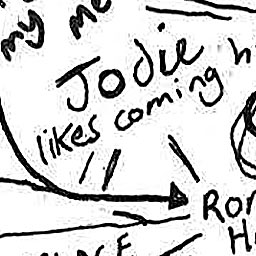 my me
Jodie
likes coming h
Ror
H